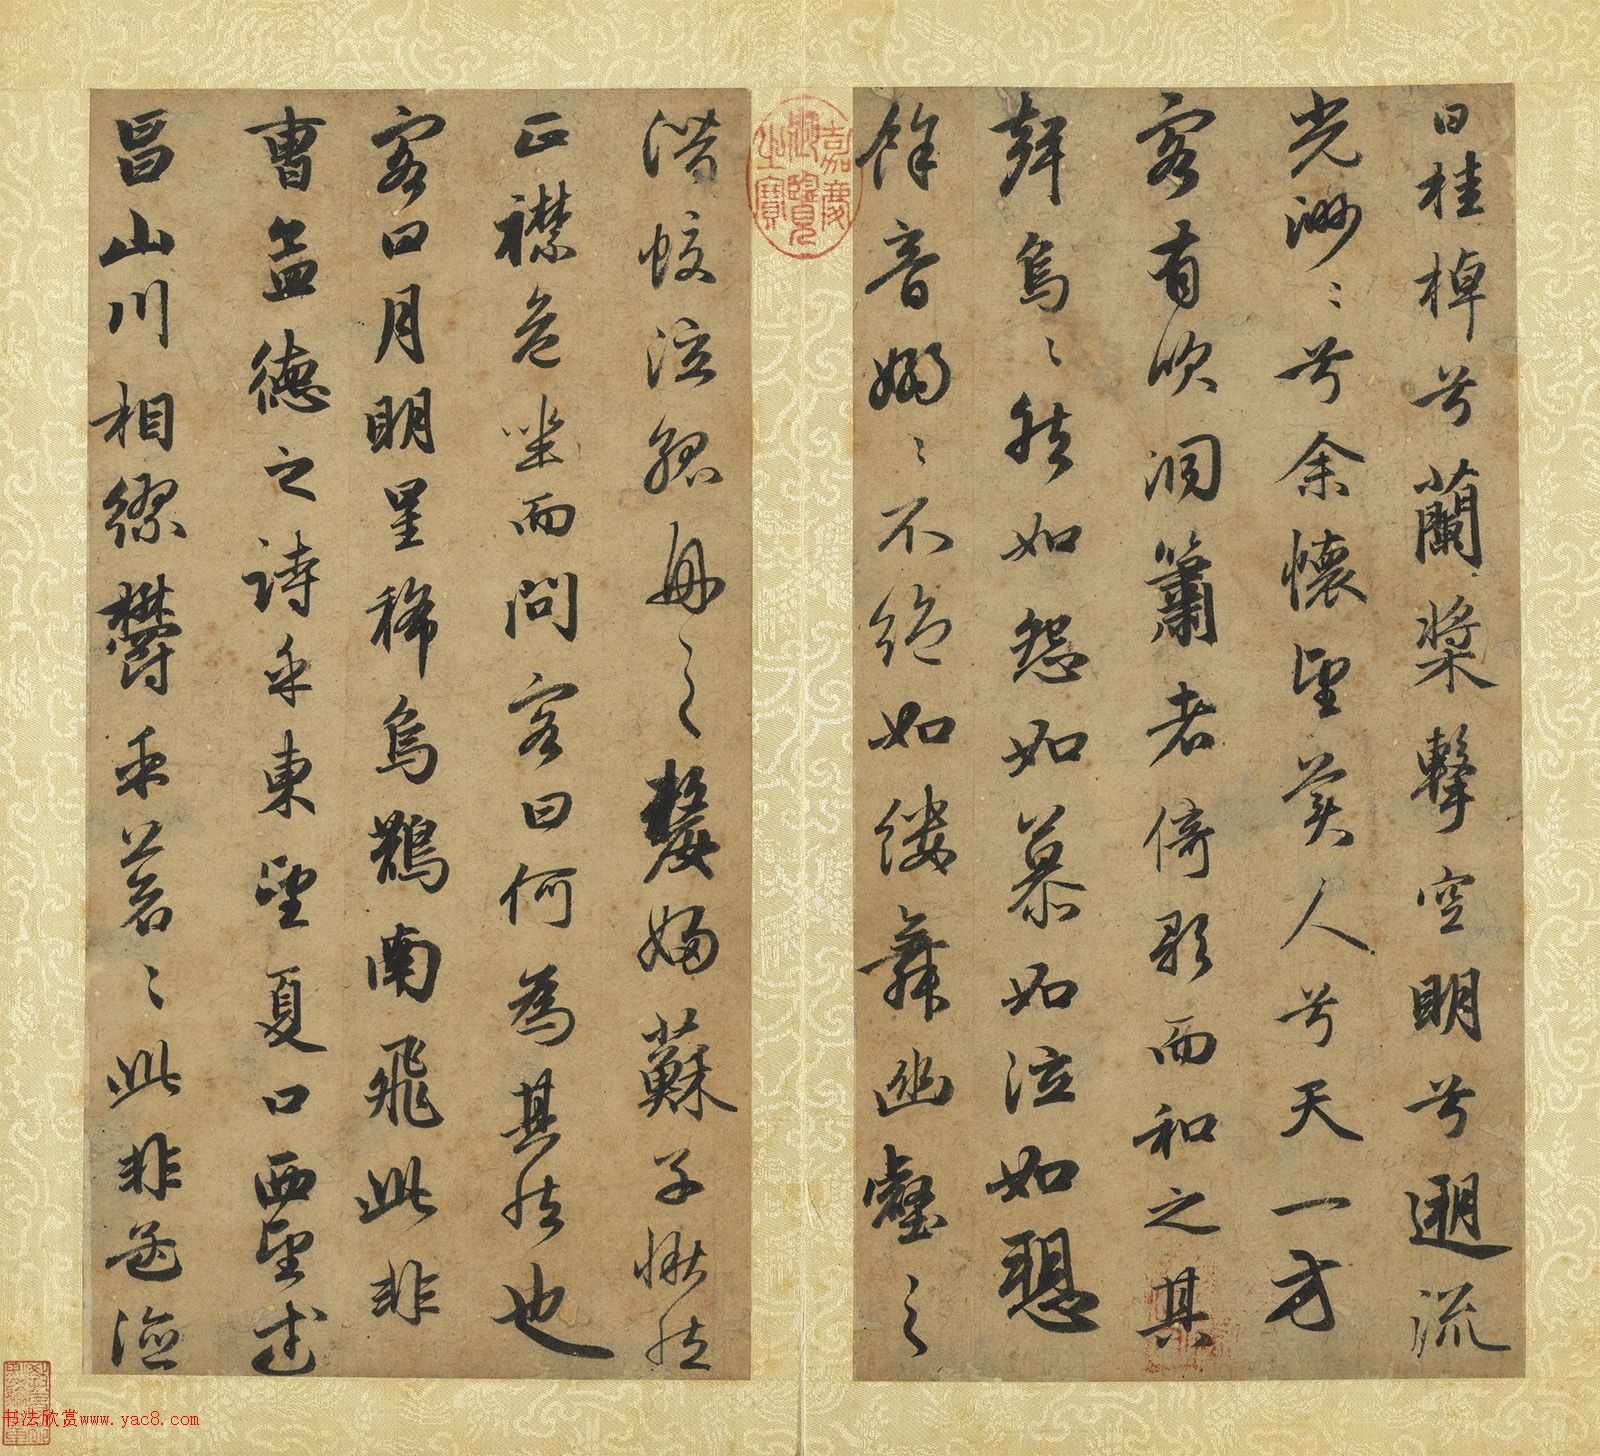 曰桂棹兮蘭槳擊空明兮遡流
光渺〻兮余懷望美人兮天一方
客有吹洞簫者倚歌而和之其
聲烏〻然如怨如慕如泣如愬
餘音嫋〻不絕如縷舞幽壑之
潛蛟泣孤舟之嫠婦蘇子愀然
正襟危坐而問客曰何為其然也
客曰月明星稀烏鵲南飛此非
曹孟德之詩乎東望夏口西望武
昌山川相繆鬱乎蒼〻此非孟德
嘉慶御覽之寶
书法欣赏www.yac8.com